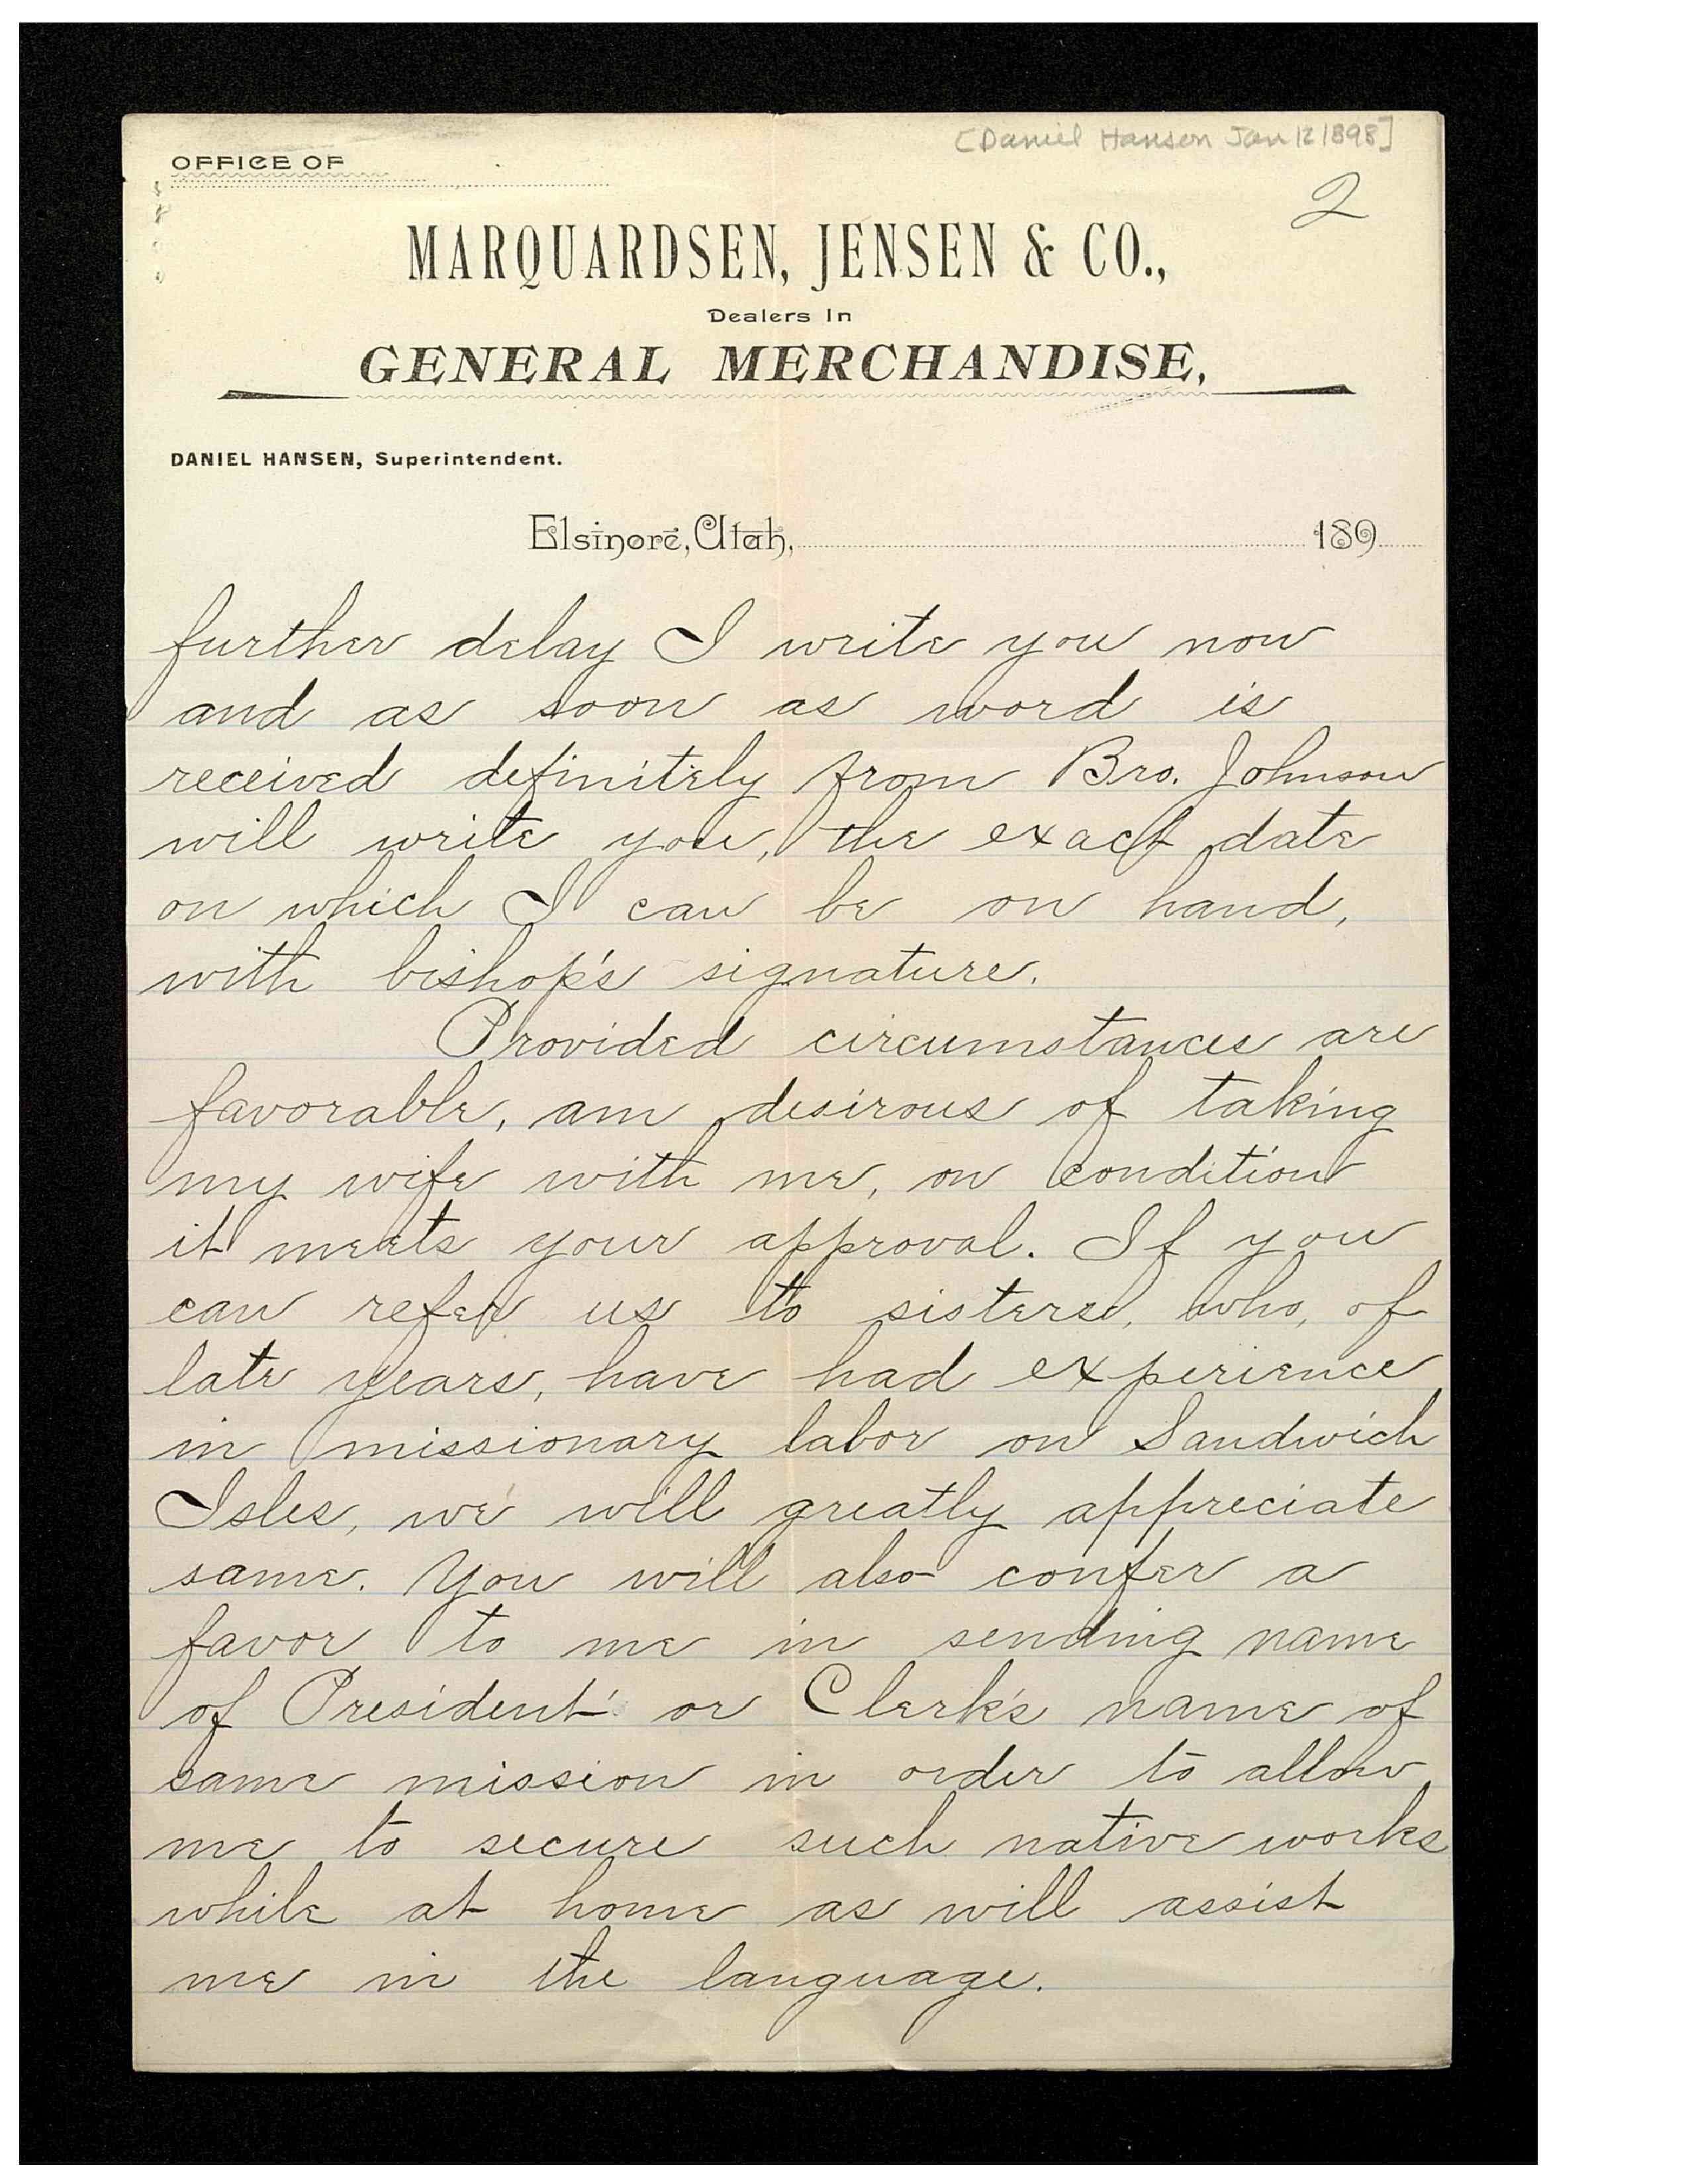 [Daniel Hansen Jan 12 1898]
OFFICE OF
2
MARQUARDSEN, JENSEN & CO.,
Dealers In
GENERAL MERCHANDISE,
DANIEL HANSEN, Superintendent.
Elsinore, Utah, 189
further delay I write you now
and as soon as word is
received definitely from Bro. Johnson
will write you, the exact date
on which I can be on hand,
with bishop's signature.
Provided circumstances are
favorable, am desirous of taking
my wife with me, on condition
it meets your approval. If you
can refer us to sisters, who, of
late years, have had experience
in missionary labor on Sandwich
Isles, we will greatly appreciate
same. You will also confer a
favor to me in sending name
of President' or Clerk's name of
same mission in order to allow
me to secure such native works
while at home as will assist
me in the language.